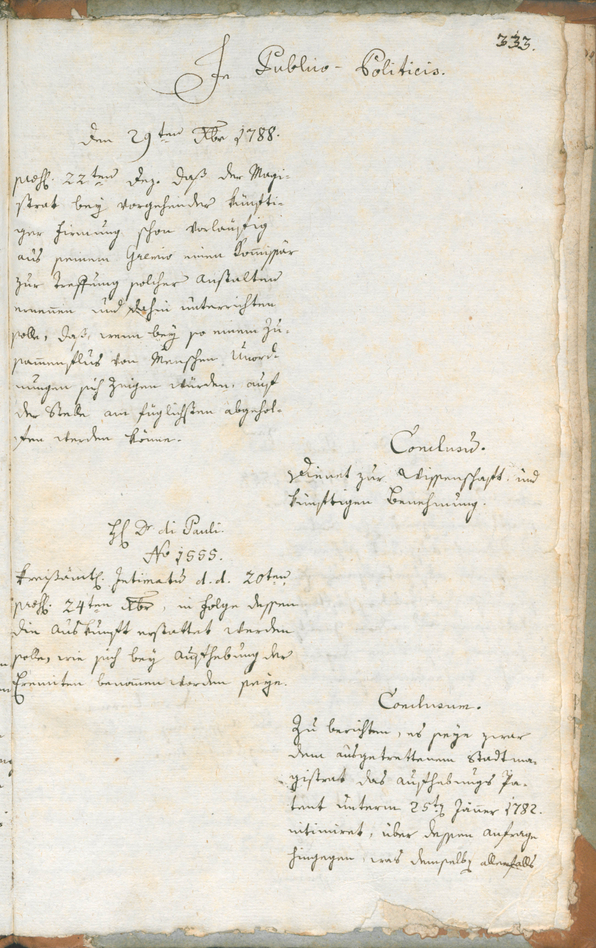 333.
In Publico-Politicis.
Den 29ten Xbr 1788.
præs. 22ten Dez. daß der Magi-
strat bey vorgehender künfti-
ger Firmung schon vorläufig
aus seinem Gremio einen Kommissär
zur Treffung solcher Anstalten
ernennen und dahin unterrichten
solle, daß, wenn bey so einem Zu-
sammenflus von Menschen Unord-
nungen sich zeigen würden, auf
der Stelle am füglichsten abgehol-
fen werden könne.
Conclusum.
Dienet zur Wissenschaft und
künftigen Benehmung.
H. Dr di Pauli
No 1555.
Kreißämtl. Intimatum d. d. 20ten
præs. 24ten Xbr, in Folge dessen
die Auskunft erstattet werden
solle, wie sich bey Aufhebung der
Eremiten benommen worden seye.
Conclusum.
Zu berichten, es seye zwar
dem ausgetrettenem Stadtma-
gistrat das Aufhebungs Pa-
tent unterm 25ten Jäner 1782.
intimiret, über dessen Anfrage
hingegen, was demselben allenfalls